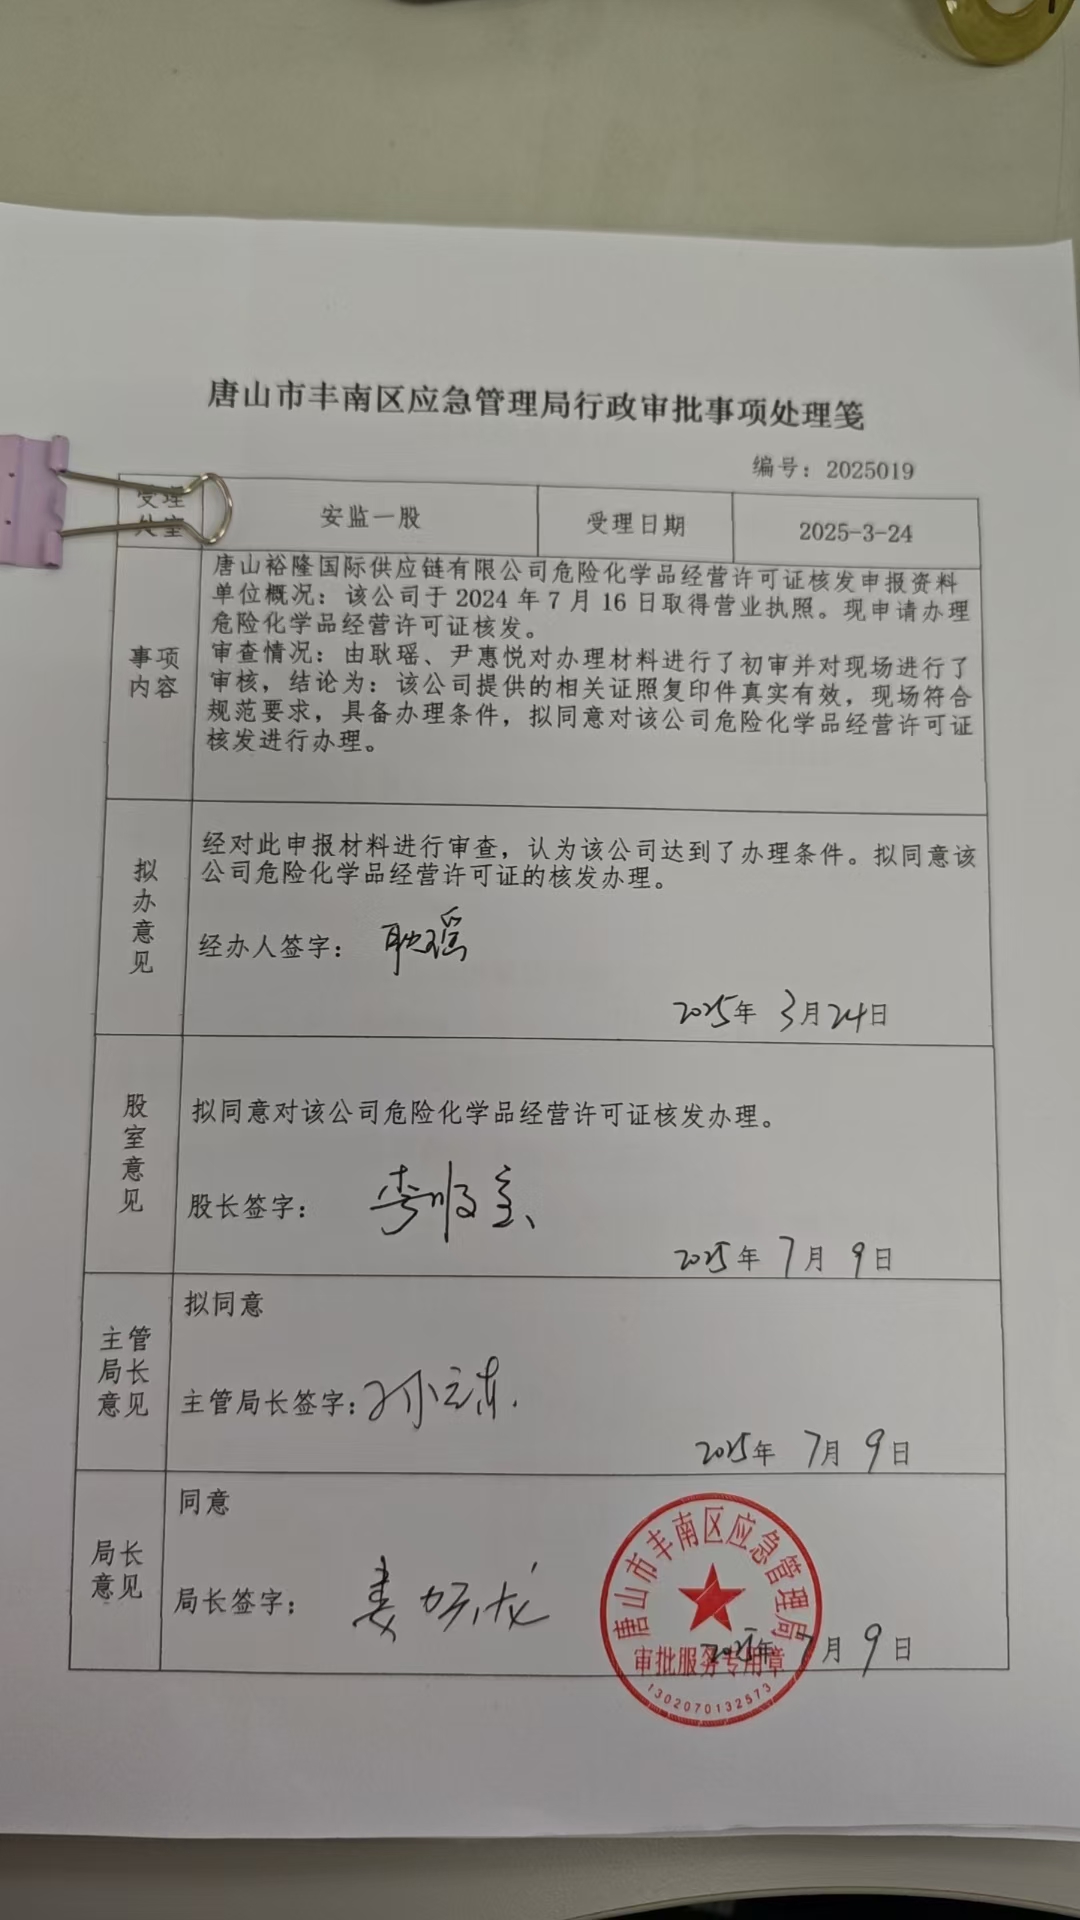 唐山市丰南区应急管理局行政审批事项处理笺
编号：2025019
受理
处室
安监一股
受理日期
2025-3-24
事项
内容
唐山裕隆国际供应链有限公司危险化学品经营许可证核发申报资料
单位概况：该公司于 2024 年 7 月 16 日取得营业执照。现申请办理
危险化学品经营许可证核发。
审查情况：由耿瑶、尹惠悦对办理材料进行了初审并对现场进行了
审核，结论为：该公司提供的相关证照复印件真实有效，现场符合
规范要求，具备办理条件，拟同意对该公司危险化学品经营许可证
核发进行办理。
拟
办
意
见
经对此申报材料进行审查，认为该公司达到了办理条件。拟同意该
公司危险化学品经营许可证的核发办理。
经办人签字： 耿瑶
2025年 3月24日
股
室
意
见
拟同意对该公司危险化学品经营许可证核发办理。
股长签字：
2025年 7月 9日
主管
局长
意见
拟同意
主管局长签字：
2025年 7月 9日
局长
意见
同意
局长签字：
2025年 7月 9日
唐山市丰南区应急管理局
审批服务专用章
1302070132573